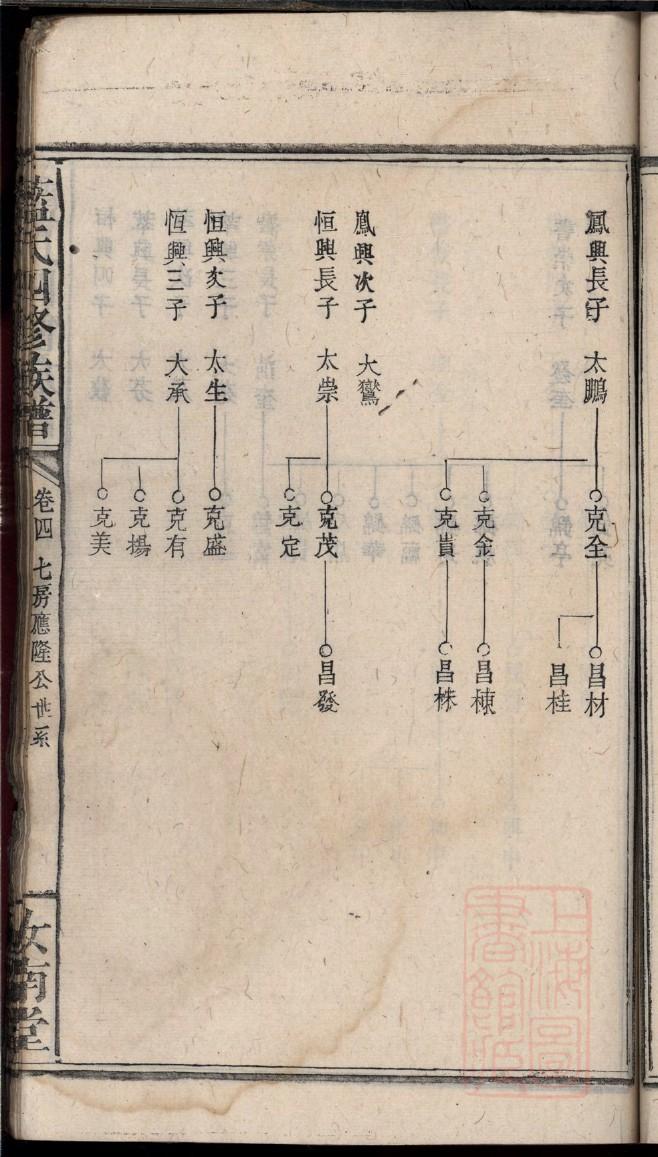 鳳興長子 太鵬
克全
克金
克貴
昌材
昌桂
昌棟
昌株
鳳興次子 大鸞
恒興長子 太崇
克茂
克定
昌發
恒興次子 太生
克盛
恒興三子 大承
克有
克揚
克美
藍氏四修族譜
卷四 七房應隆公世系
汝南堂
上海圖書館藏